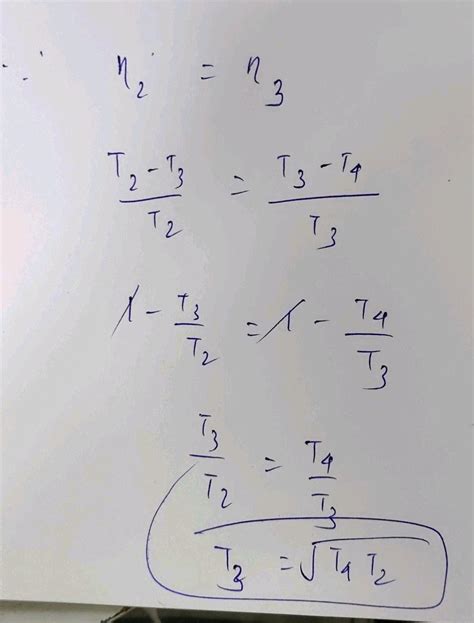 ∵ η₂ = η₃
(T₂ - T₃)/T₂ = (T₃ - T₄)/T₃
1 - T₃/T₂ = 1 - T₄/T₃
T₃/T₂ = T₄/T₃
T₃ = √(T₄ T₂)